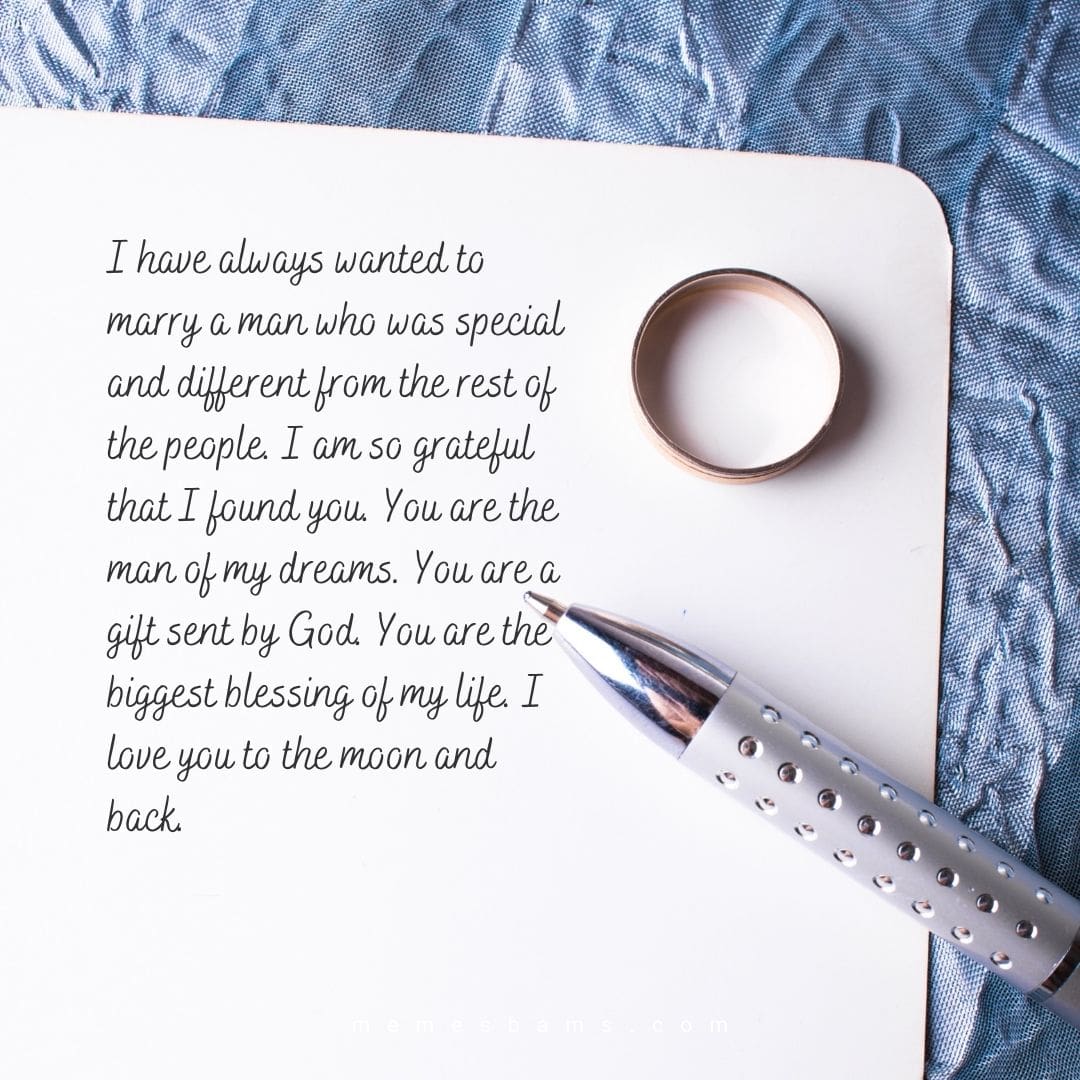 I have always wanted to
marry a man who was special
and different from the rest of
the people. I am so grateful
that I found you. You are the
man of my dreams. You are a
gift sent by God. You are the
biggest blessing of my life. I
love you to the moon and
back.
memesbams.com